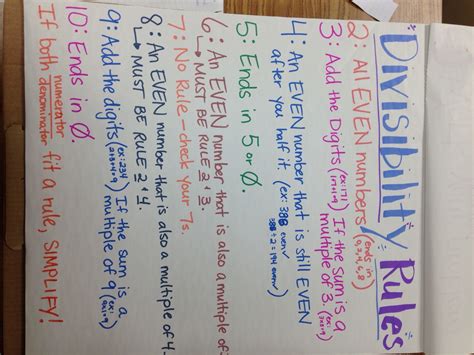 DIVISIBILITY RULES
2: All EVEN numbers (ends in 0,2,4,6,8)
3: Add the Digits (ex:171 1+7+1=9) If the sum is a
multiple of 3.
4: An EVEN number that is still EVEN
after you half it (ex: 388 even✓
388÷2=194 even✓)
5: Ends in 5 or 0.
6: An EVEN number that is also a multiple of
↳ MUST BE RULE 2 & 3.
7: No Rule - check your 7s.
8: An EVEN number that is also a multiple of 4.
↳ MUST BE RULE 2 & 4.
9: Add the digits (ex:234 2+3+4=9) If the sum is a
multiple of 9
10: Ends in 0.
If both numerator denominator fit a rule, SIMPLIFY!